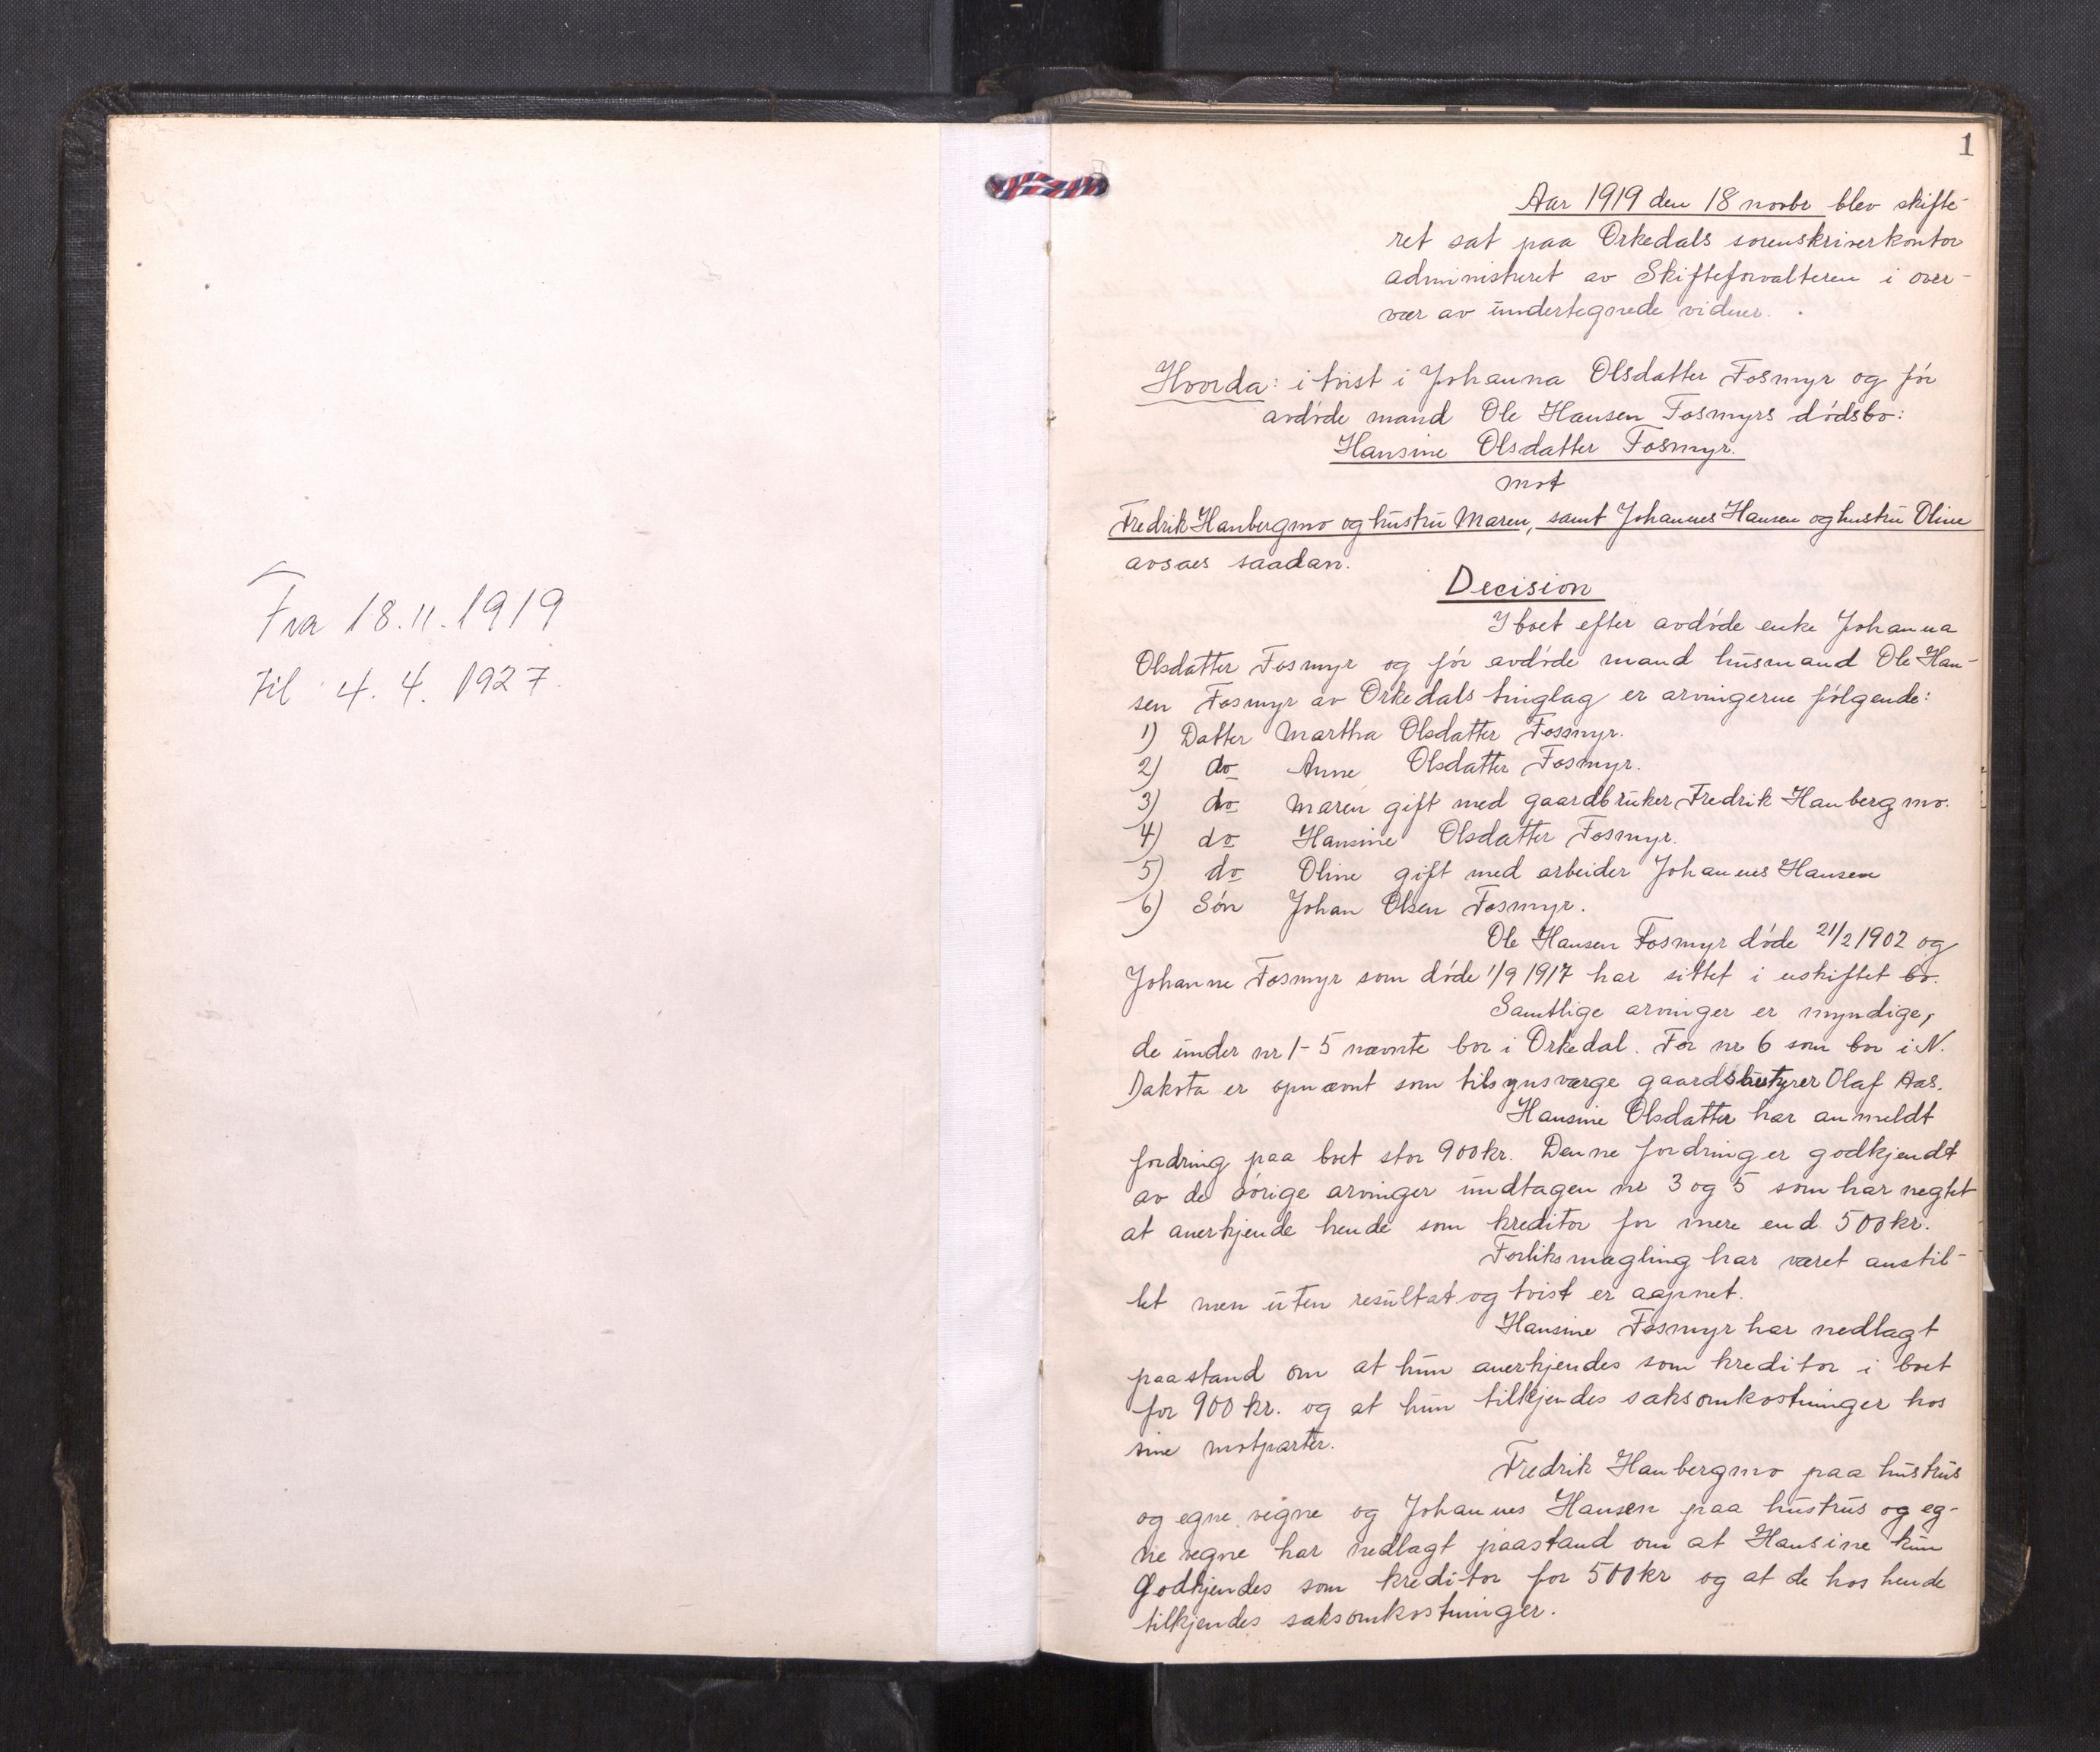 Fra 18.11.1919
til 4.4.1927.
1
Aar 1919 den 18 novbr blev skifte-
ret sat paa Orkedals sorenskriverkontor
administreret av Skifteforvalteren i over-
vær av undertegnede vidner.
Hvorda: i tvist i Johanna Olsdatter Fosmyr og før
avdøde mand Ole Hansen Fosmyrs dødsbo:
Hansine Olsdatter Fosmyr.
mot
Fredrik Haubergmo og hustru Maren, samt Johannes Hansen og hustru Oline
avsaes saadan.
Decision
I boet efter avdøde enke Johanna
Olsdatter Fosmyr og før avdøde mand husmand Ole Han-
sen Fosmyr av Orkedals tinglag er arvingerne følgende:
1) Datter Martha Olsdatter Fossmyr.
2) do Anne Olsdatter Fosmyr.
3) do Maren gift med gaardbruker Fredrik Haubergmo.
4) do Hansine Olsdatter Fosmyr.
5) do Oline gift med arbeider Johannes Hansen
6) Søn Johan Olsen Fosmyr.
Ole Hansen Fosmyr døde 21/2 1902 og
Johanne Fosmyr som døde 1/9 1917 har sittet i uskiftet bo.
Samtlige arvinger er myndige,
de under nr 1-5 nævnte bor i Orkedal. For nr 6 som bor i N.
Dakota er opnævnt som tilsynsværge gaardsbestyrer Olaf Aas.
Hansine Olsdatter har anmeldt
fordring paa boet stor 900 kr. Denne fordring er godkjendt
av de øvrige arvinger undtagen nr 3 og 5 som har negtet
at anerkjende hende som kreditor for mere end 500 kr.
Forliksmægling har været anstil-
let men uten resultat og tvist er aapnet.
Hansine Fosmyr har nedlagt
paastand om at hun anerkjendes som kreditor i boet
for 900 kr. og at hun tilkjendes saksomkostninger hos
sine motparter.
Fredrik Haubergmo paa hustrus
og egne vegne og Johannes Hansen paa hustrus og eg-
ne vegne har nedlagt paastand om at Hansine kun
Godkjendes som kreditor for 500 kr og at de hos hende
tilkjendes saksomkostninger.